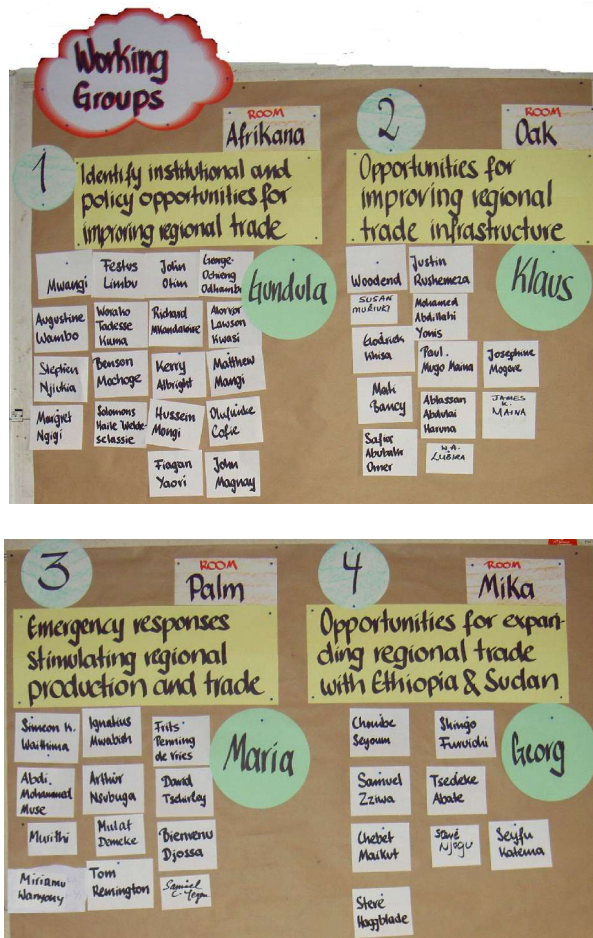 Working
Groups
1
ROOM
Afrikana
Identify institutional and
policy opportunities for
improving regional trade
Gundula
Mwangi
Festus
Limbu
John
Otim
George-
Ochieng
Odhambo
Augustine
Wambo
Worako
Tadesse
Kuma
Richard
Mkandawire
Lawson
Kwasi
Stephen
Njukia
Benson
Mochoge
Kerry
Albright
Matthew
Mangi
Margret
Ngigi
Solomons
Haile Welde-
sclassie
Hussein
Mongi
Cofie
Fiagan
Yaovi
John
Magnay
2
ROOM
Oak
Opportunities for
improving regional
trade infrastructure
Klaus
Woodend
Justin
Rushemeza
SUSAN
MURIUKI
Mohamed
Abdillahi
Yonis
Godrick
Khisa
Paul.
Mugo Maina
Josephine
Mogere
Bancy
Ablassan
Abdulai
Haruna
JAMES
K.
MAINA
Safior
Abubakr
Omer
W.A.
LUBIRA
3
ROOM
Palm
Emergency responses
stimulating regional
production and trade
Maria
Simeon K.
Waithima
Ignatius
Mwabish
Frits
Penning
de Vries
Abdi.
Mohammed
Muse
Arthur
Nsubuga
David
Tschirley
Murithi
Mulat
Demeke
Bienvenu
Djossa
Miriamu
Wanyony
Tom
Remington
Samuel
4
ROOM
Mika
Opportunities for expan-
ding regional trade
with Ethiopia & Sudan
Georg
Seyoum
Shingo
Samuel
Zziwa
Tsedeke
Abate
Chebet
Maikut
Steve
NJOGU
Seyfu
Ketema
Steve
Haggblade